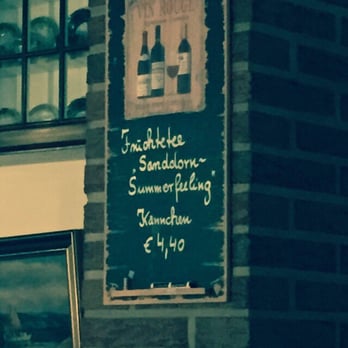 VIN ROUGE
Früchtetee
"Sanddorn-
Summerfeeling"
Kännchen
€ 4,40